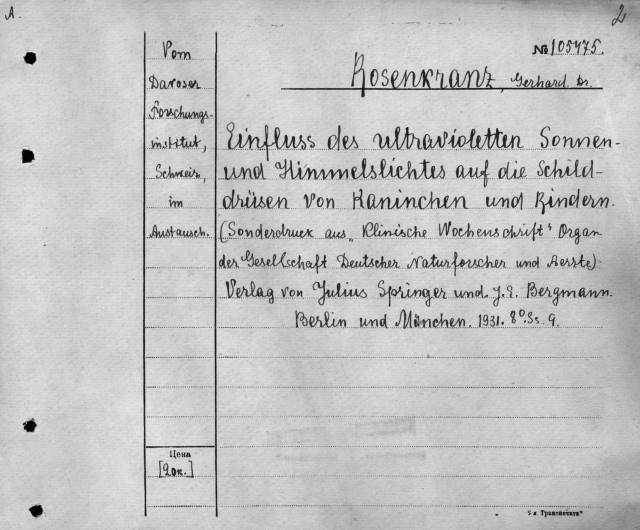 A.
2
№ 105475.
Vom
Davoser
Forschungs-
institut,
Schweiz,
im
Austausch.
Rosenkranz, Gerhard Dr.
Einfluss des ultravioletten Sonnen-
und Himmelslichtes auf die Schild-
drüsen von Kaninchen und Rindern.
(Sonderdruck aus „Klinische Wochenschrift" Organ
der Gesellschaft Deutscher Naturforscher und Aerzte)
Verlag von Julius Springer und J. F. Bergmann.
Berlin und München. 1931. 8⁰. Ss. 9.
Цена
[20к.]
"Транспечати"